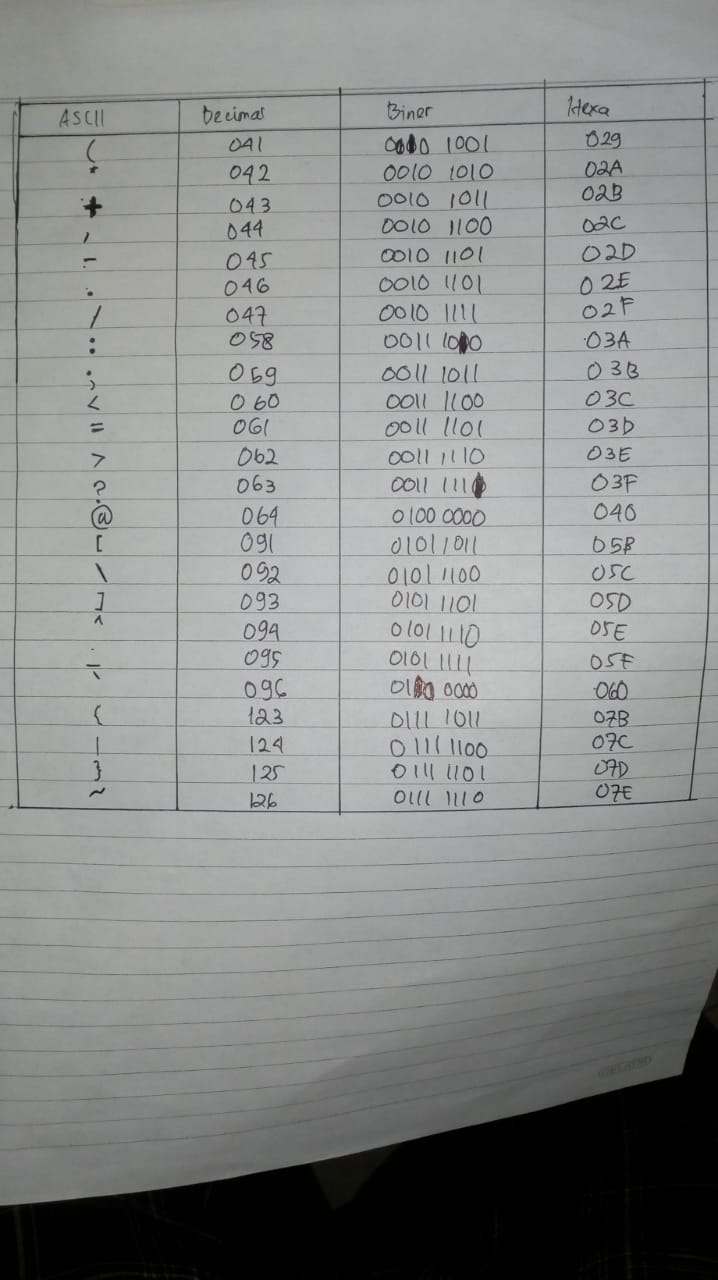 ASCII Decimal Biner Hexa
( 041 0010 1001 029
* 042 0010 1010 02A
+ 043 0010 1011 02B
, 044 0010 1100 02C
- 045 0010 1101 02D
. 046 0010 1101 02E
/ 047 0010 1111 02F
: 058 0011 1000 03A
; 059 0011 1011 03B
< 060 0011 1100 03C
= 061 0011 1101 03D
> 062 0011 1110 03E
? 063 0011 111 03F
@ 064 0100 0000 040
[ 091 0101 1011 05B
\ 092 0101 1100 05C
] 093 0101 1101 05D
^ 094 0101 1110 05E
_ 095 0101 1111 05F
` 096 0110 0000 060
{ 123 0111 1011 07B
| 124 0111 1100 07C
} 125 0111 1101 07D
~ 126 0111 1110 07E